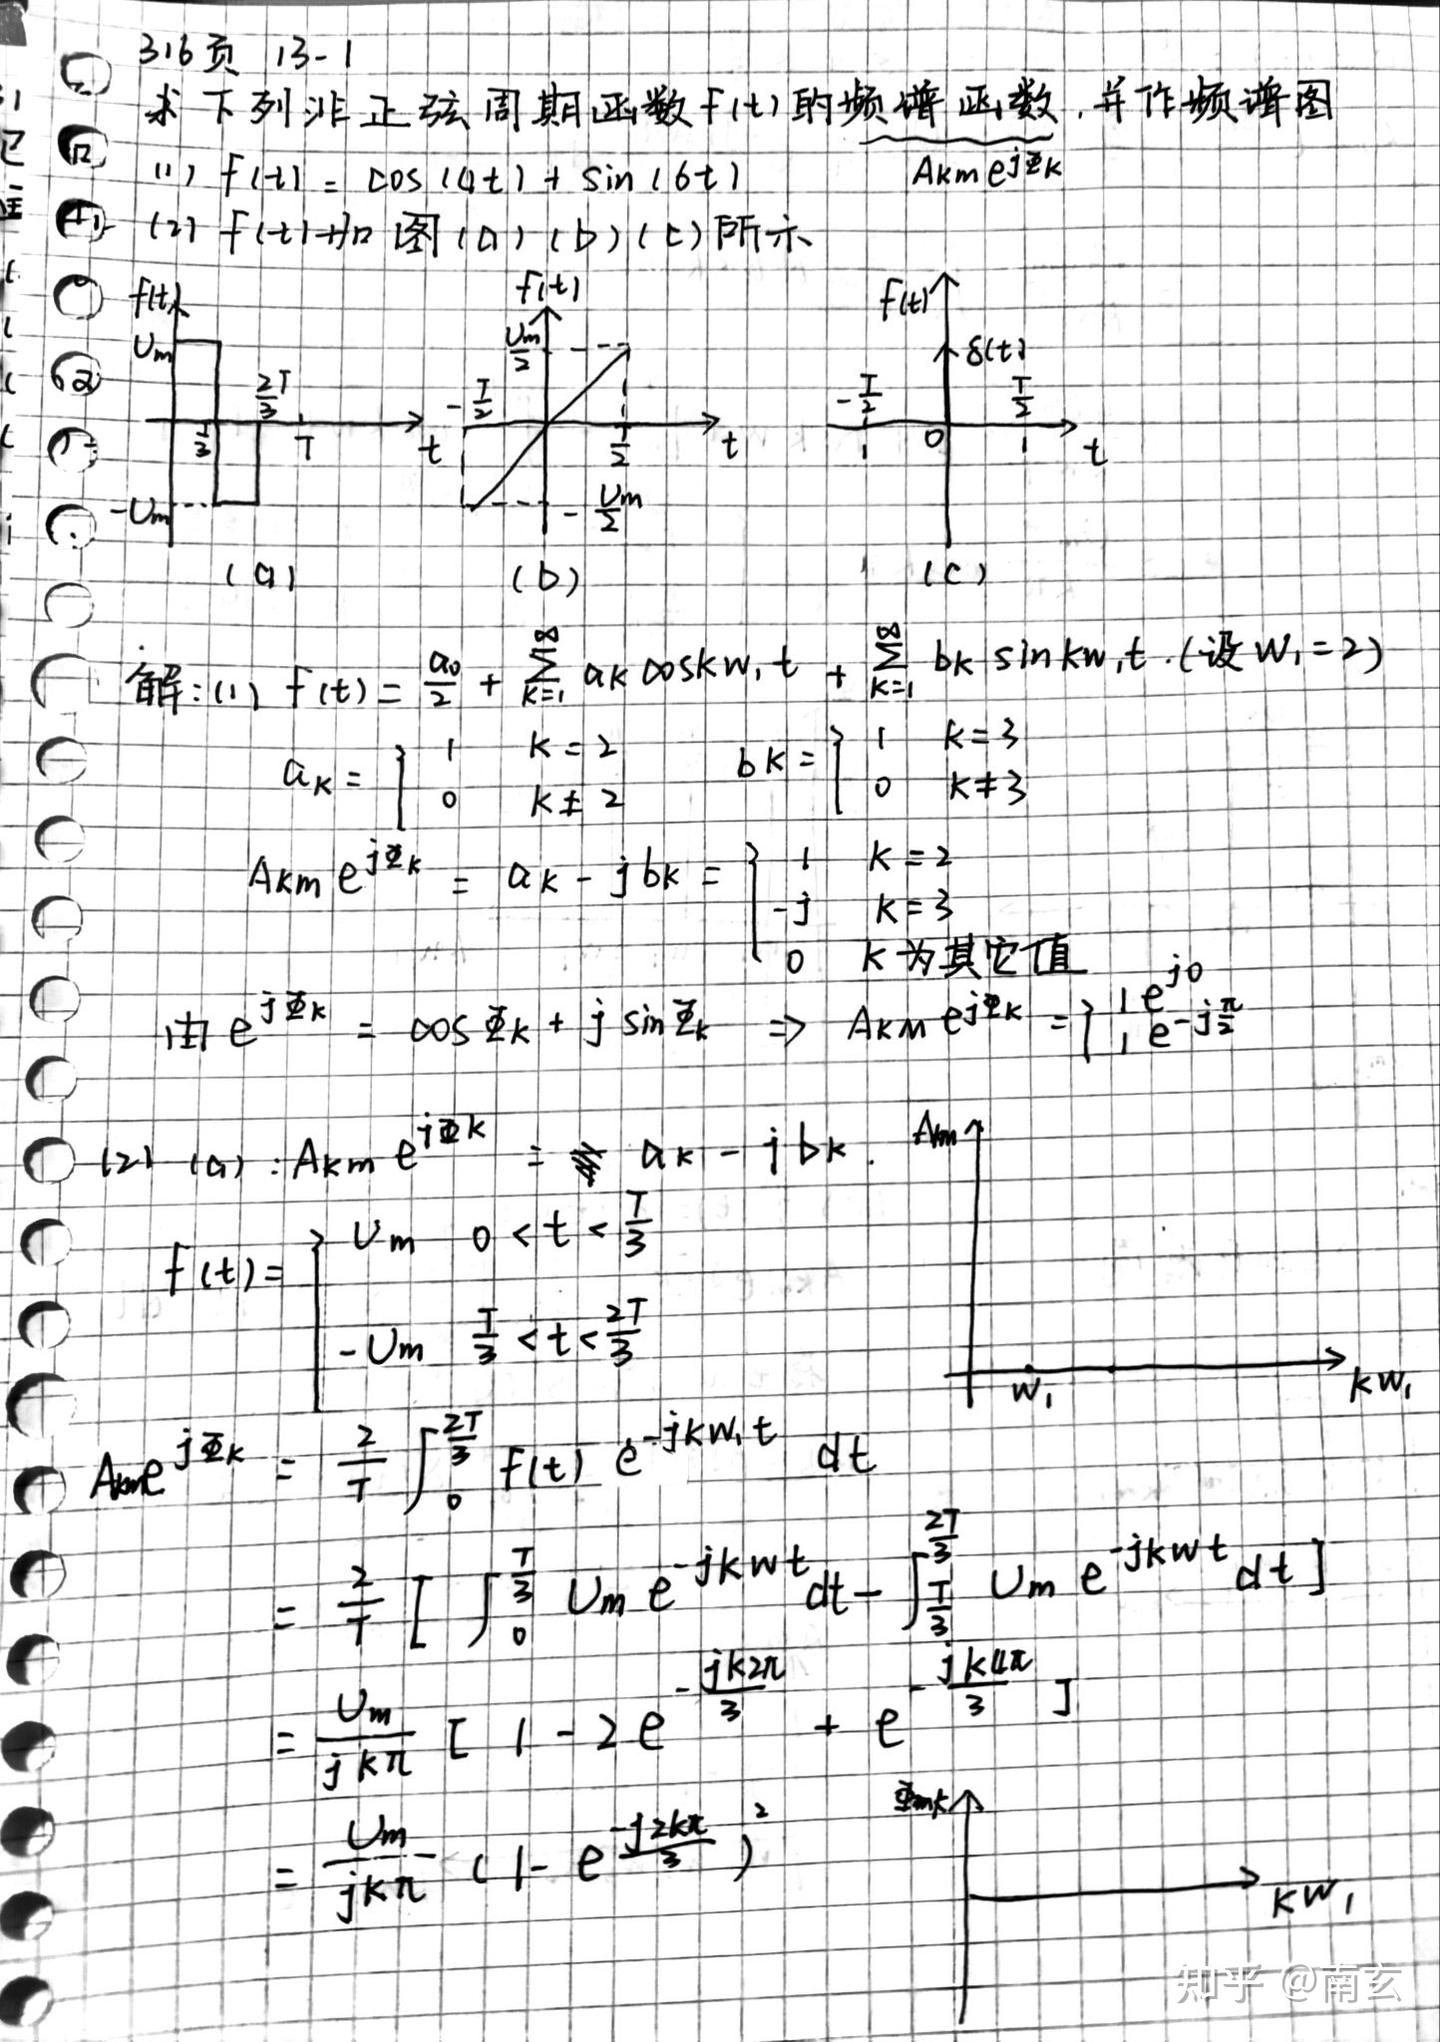 316页 13-1
求下列非正弦周期函数f(t)的频谱函数,并作频谱图
Akm e^{jΦk}
(1) f(t) = cos(4t) + sin(6t)
(2) f(t)如图(a)(b)(c)所示
f(t) Um -Um T/3 2T/3 T t
(a)
f(t) Um/2 -T/2 T/2 -Um/2 t
(b)
f(t) δ(t) -T/2 T/2 0 1 1 t
(c)
解:(1) f(t) = a0/2 + ∑_{k=1}^{∞} ak cos kw1t + ∑_{k=1}^{∞} bk sin kw1t.(设 w1=2)
ak = { 1 k=2
0 k≠2
bk = { 1 k=3
0 k≠3
Akm e^{jΦk} = ak - jbk = { 1 k=2
-j k=3
0 k为其它值
由 e^{jΦk} = cosΦk + j sinΦk ⇒ Akm e^{jΦk} = { 1e^{j0}
1e^{-jπ/2}
(2) (a): Akm e^{jΦk} = ak - jbk.
f(t) = { Um 0<t<T/3
-Um T/3<t<2T/3
Akm
w1 kw1
Akm e^{jΦk} = 2/T ∫_0^{2T/3} f(t) e^{-jkw1t} dt
= 2/T [ ∫_0^{T/3} Um e^{-jkwt} dt - ∫_{T/3}^{2T/3} Um e^{-jkwt} dt ]
= Um/jkπ [ 1 - 2e^{-jk2π/3} + e^{-jk4π/3} ]
= Um/jkπ (1 - e^{-j2kπ/3})^2
kw1
知乎 @南玄